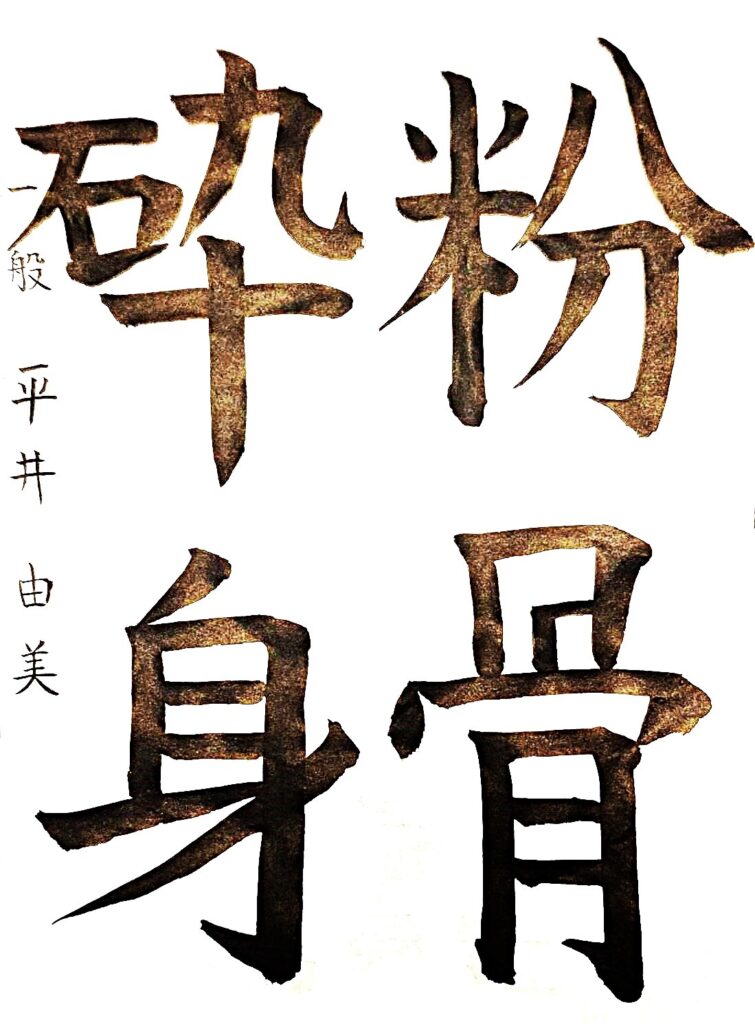 粉骨
砕身
一般 平井 由美